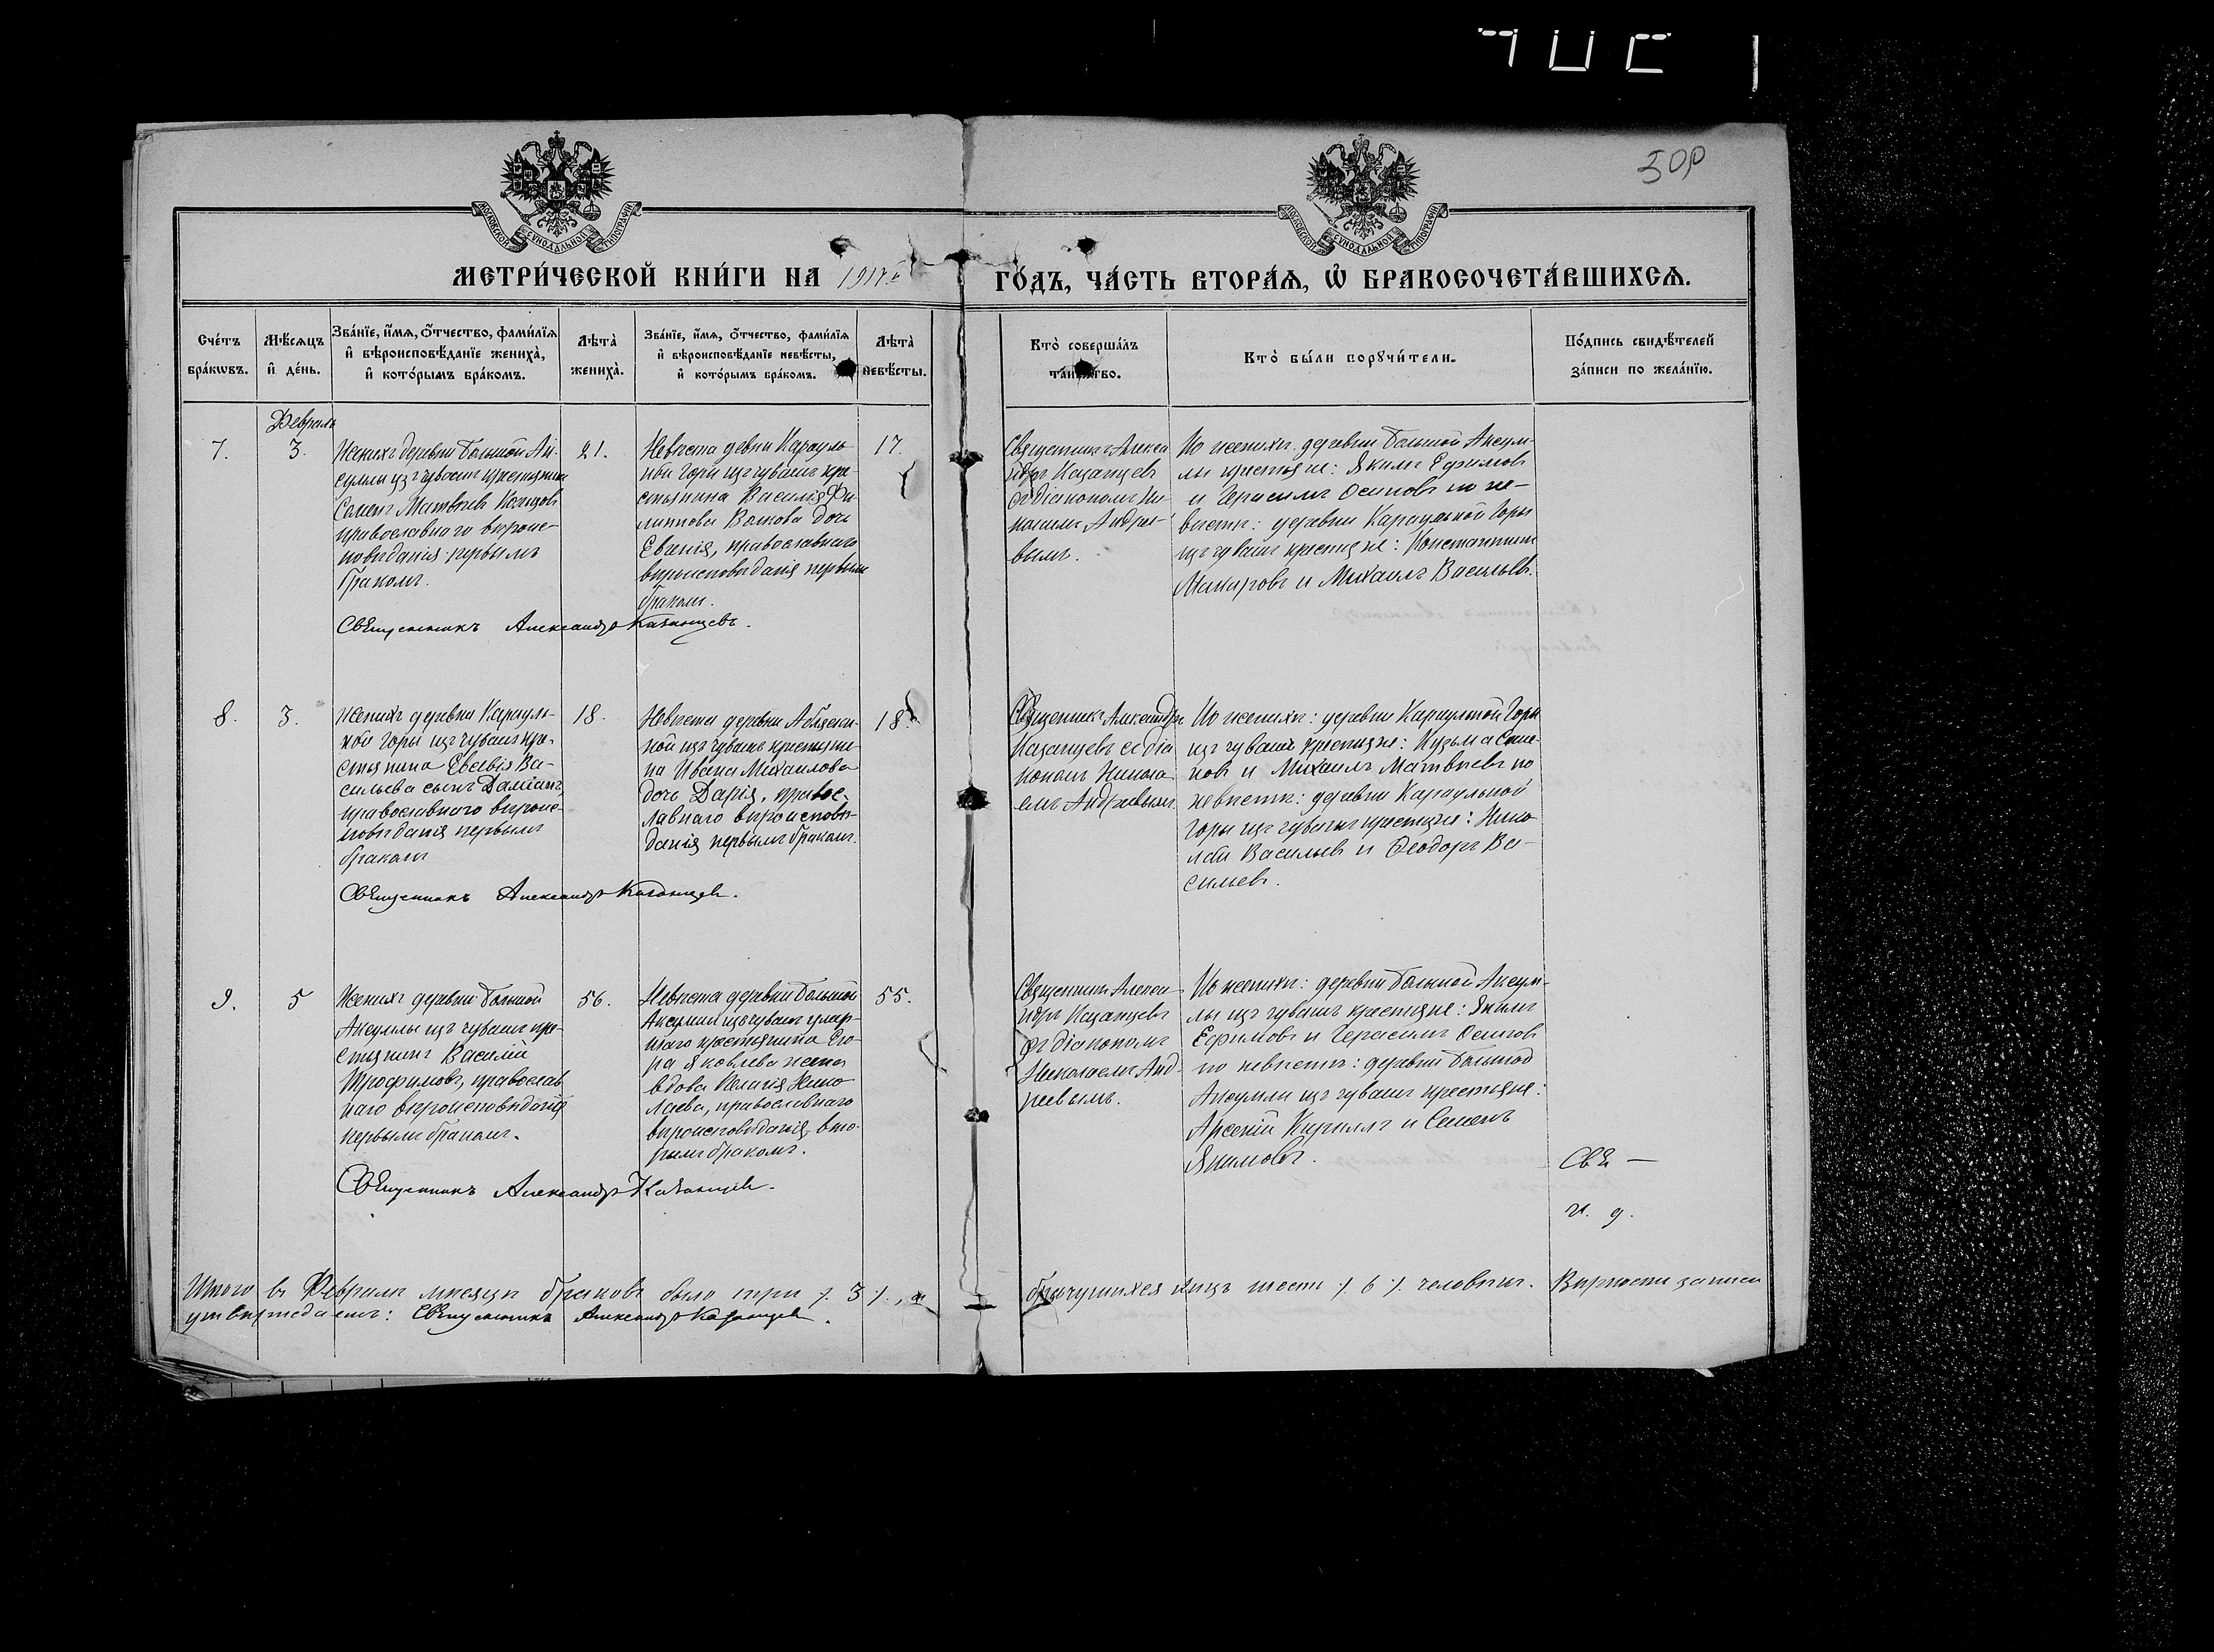 309
МОСКОВСКОЙ СѴНОДАЛЬНОЙ ТИПОГРАФІИ
МОСКОВСКОЙ СѴНОДАЛЬНОЙ ТИПОГРАФІИ
МЕТРИ́ЧЕСКОЙ КНИ́ГИ НА 1917й ГО́ДЪ, ЧА́СТЬ ВТОРА́Ѧ, Ѡ҆ БРАКОСОЧЕТА́ВШИХСѦ.
Сче́тъ
бра́кѡвъ.
Мѣ́сѧцъ
и҆ де́нь.
Зва́нїе, и҆́мѧ, ѻ҆́тчество, фами́лїѧ
и҆ вѣроисповѣ́данїе жениха̀,
и҆ кото́рымъ бра́комъ.
Лѣта̀
жениха̀.
Зва́нїе, и҆́мѧ, ѻ҆́тчество, фами́лїѧ
и҆ вѣроисповѣ́данїе невѣ́сты,
и҆ кото́рымъ бра́комъ.
Лѣта̀
невѣ́сты.
Кто̀ соверша́лъ
та́инство.
Кто̀ бы́ли порꙋчи́тели.
По́дпись свидѣ́телей
за́писи по жела́нїю.
Февраль
7.
3.
Женихъ деревни Большой Ак-
суллы изъ чувашъ крестьянинъ
Семенъ Матвѣевъ
православнаго вѣроис-
повѣданія первымъ
бракомъ.
21.
Невѣста деревни Карауль-
ной Горы изъ чувашъ кре-
стьянина Василія Фи-
липпова Волкова дочь
Евгенія, православнаго
вѣроисповѣданія первымъ
бракомъ.
17.
Священникъ Алекса
ндръ Казанцевъ
съ діакономъ Ни-
колаемъ Андрее-
вымъ.
По женихѣ: деревни Большой Аксум-
лы крестьяне: Якимъ Ефимовъ
и Герасимъ Осиповъ по не-
вѣстѣ: деревни Караульной Горы
изъ чувашъ крестьяне: Константинъ
Макаровъ и Михаилъ Васильевъ.
Священникъ Александръ Казанцевъ.
8.
3.
Женихъ деревни Карауль-
ной Горы изъ чувашъ кре-
стьянина Евсевія Ва-
сильева сынъ Даміанъ,
православнаго вѣроис-
повѣданія первымъ
бракомъ
18.
Невѣста деревни
ной изъ чувашъ крестьяни-
на Ивана Михаилова
дочь Дарія, правос-
лавнаго вѣроисповѣ-
данія первымъ бракомъ.
18.
Священникъ Александръ
Казанцевъ съ діа
кономъ Никола
емъ Андреевымъ.
По женихѣ: деревни Караульной Горы
изъ чувашъ крестьяне: Кузьма Семе-
новъ и Михаилъ Матвѣевъ по
невѣстѣ: деревни Караульной
Горы изъ чувашъ крестьяне: Нико-
лай Васильевъ и Ѳеодоръ Ва-
сильевъ.
Священникъ Александръ Казанцевъ.
9.
5
Женихъ деревни Большой
Аксумлы изъ чувашъ кре-
стьянинъ Василій
Трофимовъ, православ
наго вѣроисповѣданія
первымъ бракомъ.
56.
Невѣста деревни Большой
Аксумлы изъ чувашъ умер-
шаго крестьянина Его-
ра Яковлева жена
вдова Пелагія Нико
лаева, православнаго
вѣроисповѣданія, вто-
рымъ бракомъ.
55.
Священникъ Алекса
ндръ Казанцевъ
съ діакономъ
Николаемъ Анд-
реевымъ.
По женихѣ: деревни Большой Аксум-
лы изъ чувашъ крестьяне: Якимъ
Ефимовъ и Герасимъ Осиповъ
по невѣстѣ: деревни Большой
Аксумлы изъ чувашъ крестьяне:
Арсеній Кириллъ и Семенъ
Якимовъ.
Священникъ Александръ Казанцевъ.
Свя —
и. д.
Итого въ Февралѣ мѣсяцѣ браковъ было три ./. 3 ./., а брачущихся лицъ шесть ./. 6 ./. человѣкъ. Вѣрность записи
утверждаемъ: Священникъ Александръ Казанцевъ.